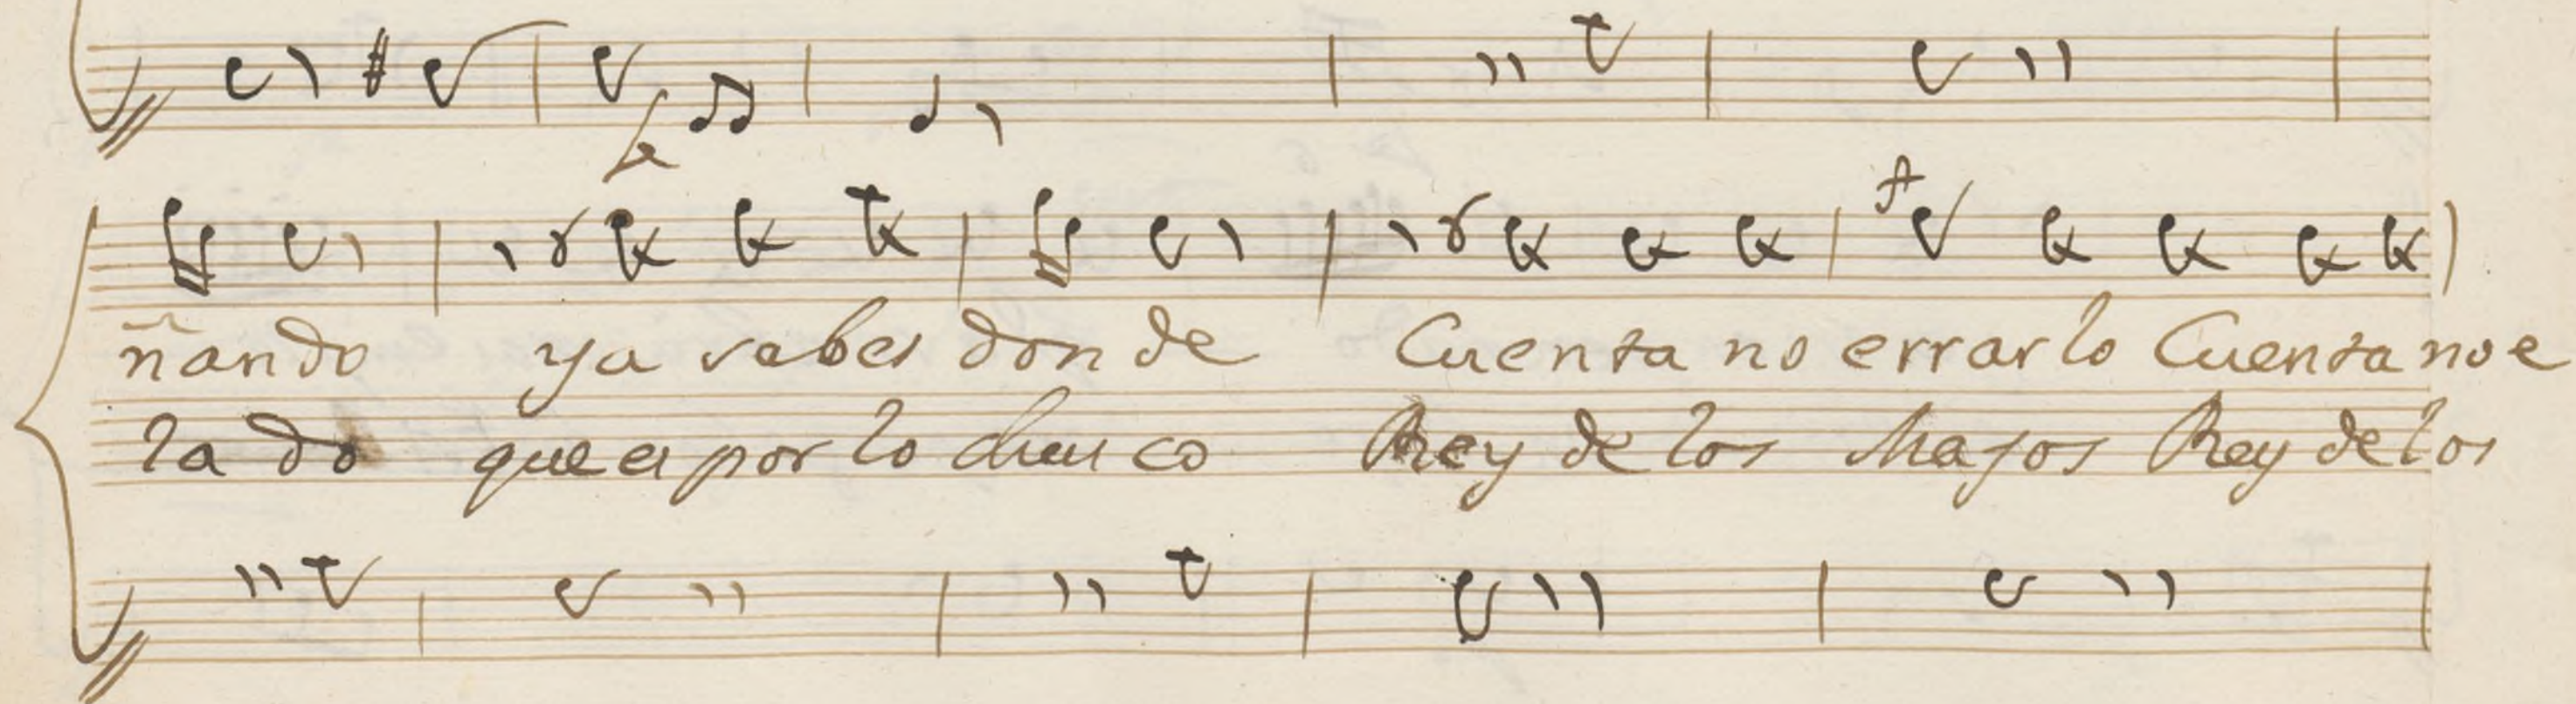 ñando ya sabes donde Cuenta no errarlo Cuenta no e
lado que es por lo chusco Rey de los Majos Rey de los